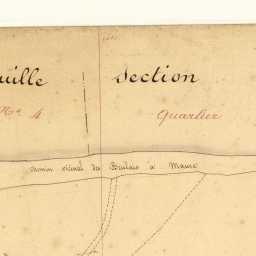 uille Section
No 4 Quartier
chemin vicinal de Brulais à Maure